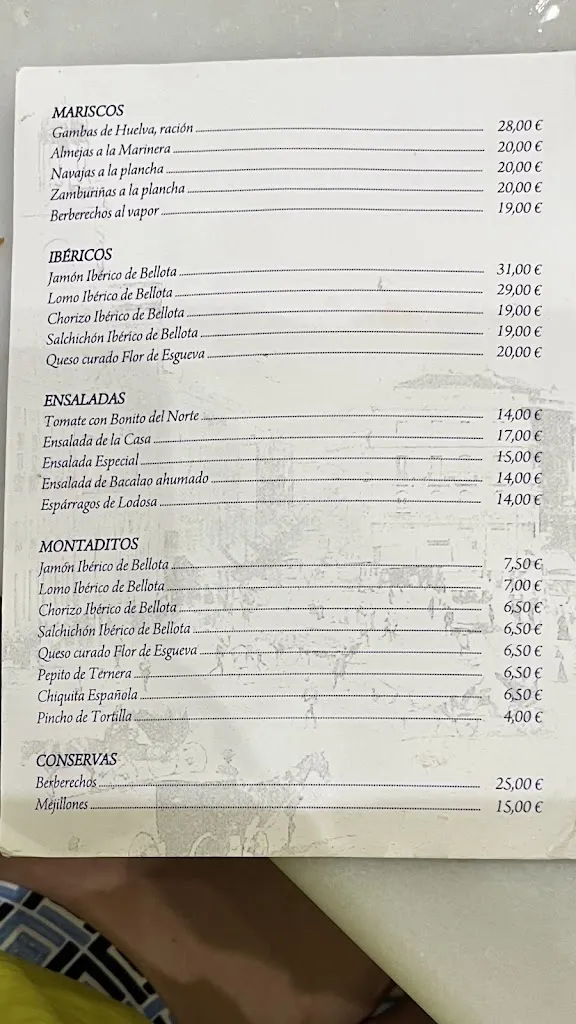 MARISCOS
Gambas de Huelva, ración 28,00 €
Almejas a la Marinera 20,00 €
Navajas a la plancha 20,00 €
Zamburiñas a la plancha 20,00 €
Berberechos al vapor 19,00 €
IBÉRICOS
Jamón Ibérico de Bellota 31,00 €
Lomo Ibérico de Bellota 29,00 €
Chorizo Ibérico de Bellota 19,00 €
Salchichón Ibérico de Bellota 19,00 €
Queso curado Flor de Esgueva 20,00 €
ENSALADAS
Tomate con Bonito del Norte 14,00 €
Ensalada de la Casa 17,00 €
Ensalada Especial 15,00 €
Ensalada de Bacalao ahumado 14,00 €
Espárragos de Lodosa 14,00 €
MONTADITOS
Jamón Ibérico de Bellota 7,50 €
Lomo Ibérico de Bellota 7,00 €
Chorizo Ibérico de Bellota 6,50 €
Salchichón Ibérico de Bellota 6,50 €
Queso curado Flor de Esgueva 6,50 €
Pepito de Ternera 6,50 €
Chiquita Española 6,50 €
Pincho de Tortilla 4,00 €
CONSERVAS
Berberechos 25,00 €
Mejillones 15,00 €